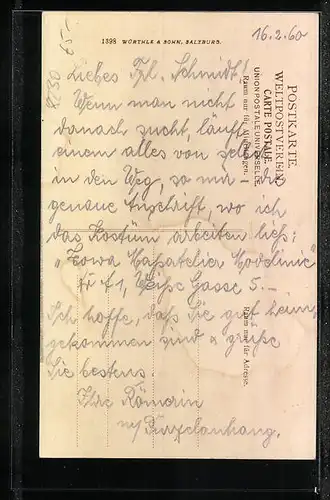 16.2.60
1398 WÜRTHLE & SOHN, SALZBURG.
POSTKARTE
WELTPOSTVEREIN
CARTE POSTALE
UNION POSTALE UNIVERSELLE
Raum nur für Mitteilungen.
Raum nur für Adresse.
Liebes Frl. Schmidt!
Wenn man nicht
danach sucht, läuft
einem alles von
in den Weg, so
genaue Anschrift, wo ich
das Kostüm arbeiten ließ:
"
1, Weiße Gasse 5.-
Ich hoffe, daß Sie gut heim
gekommen sind & grüße
Sie bestens.
Ihre